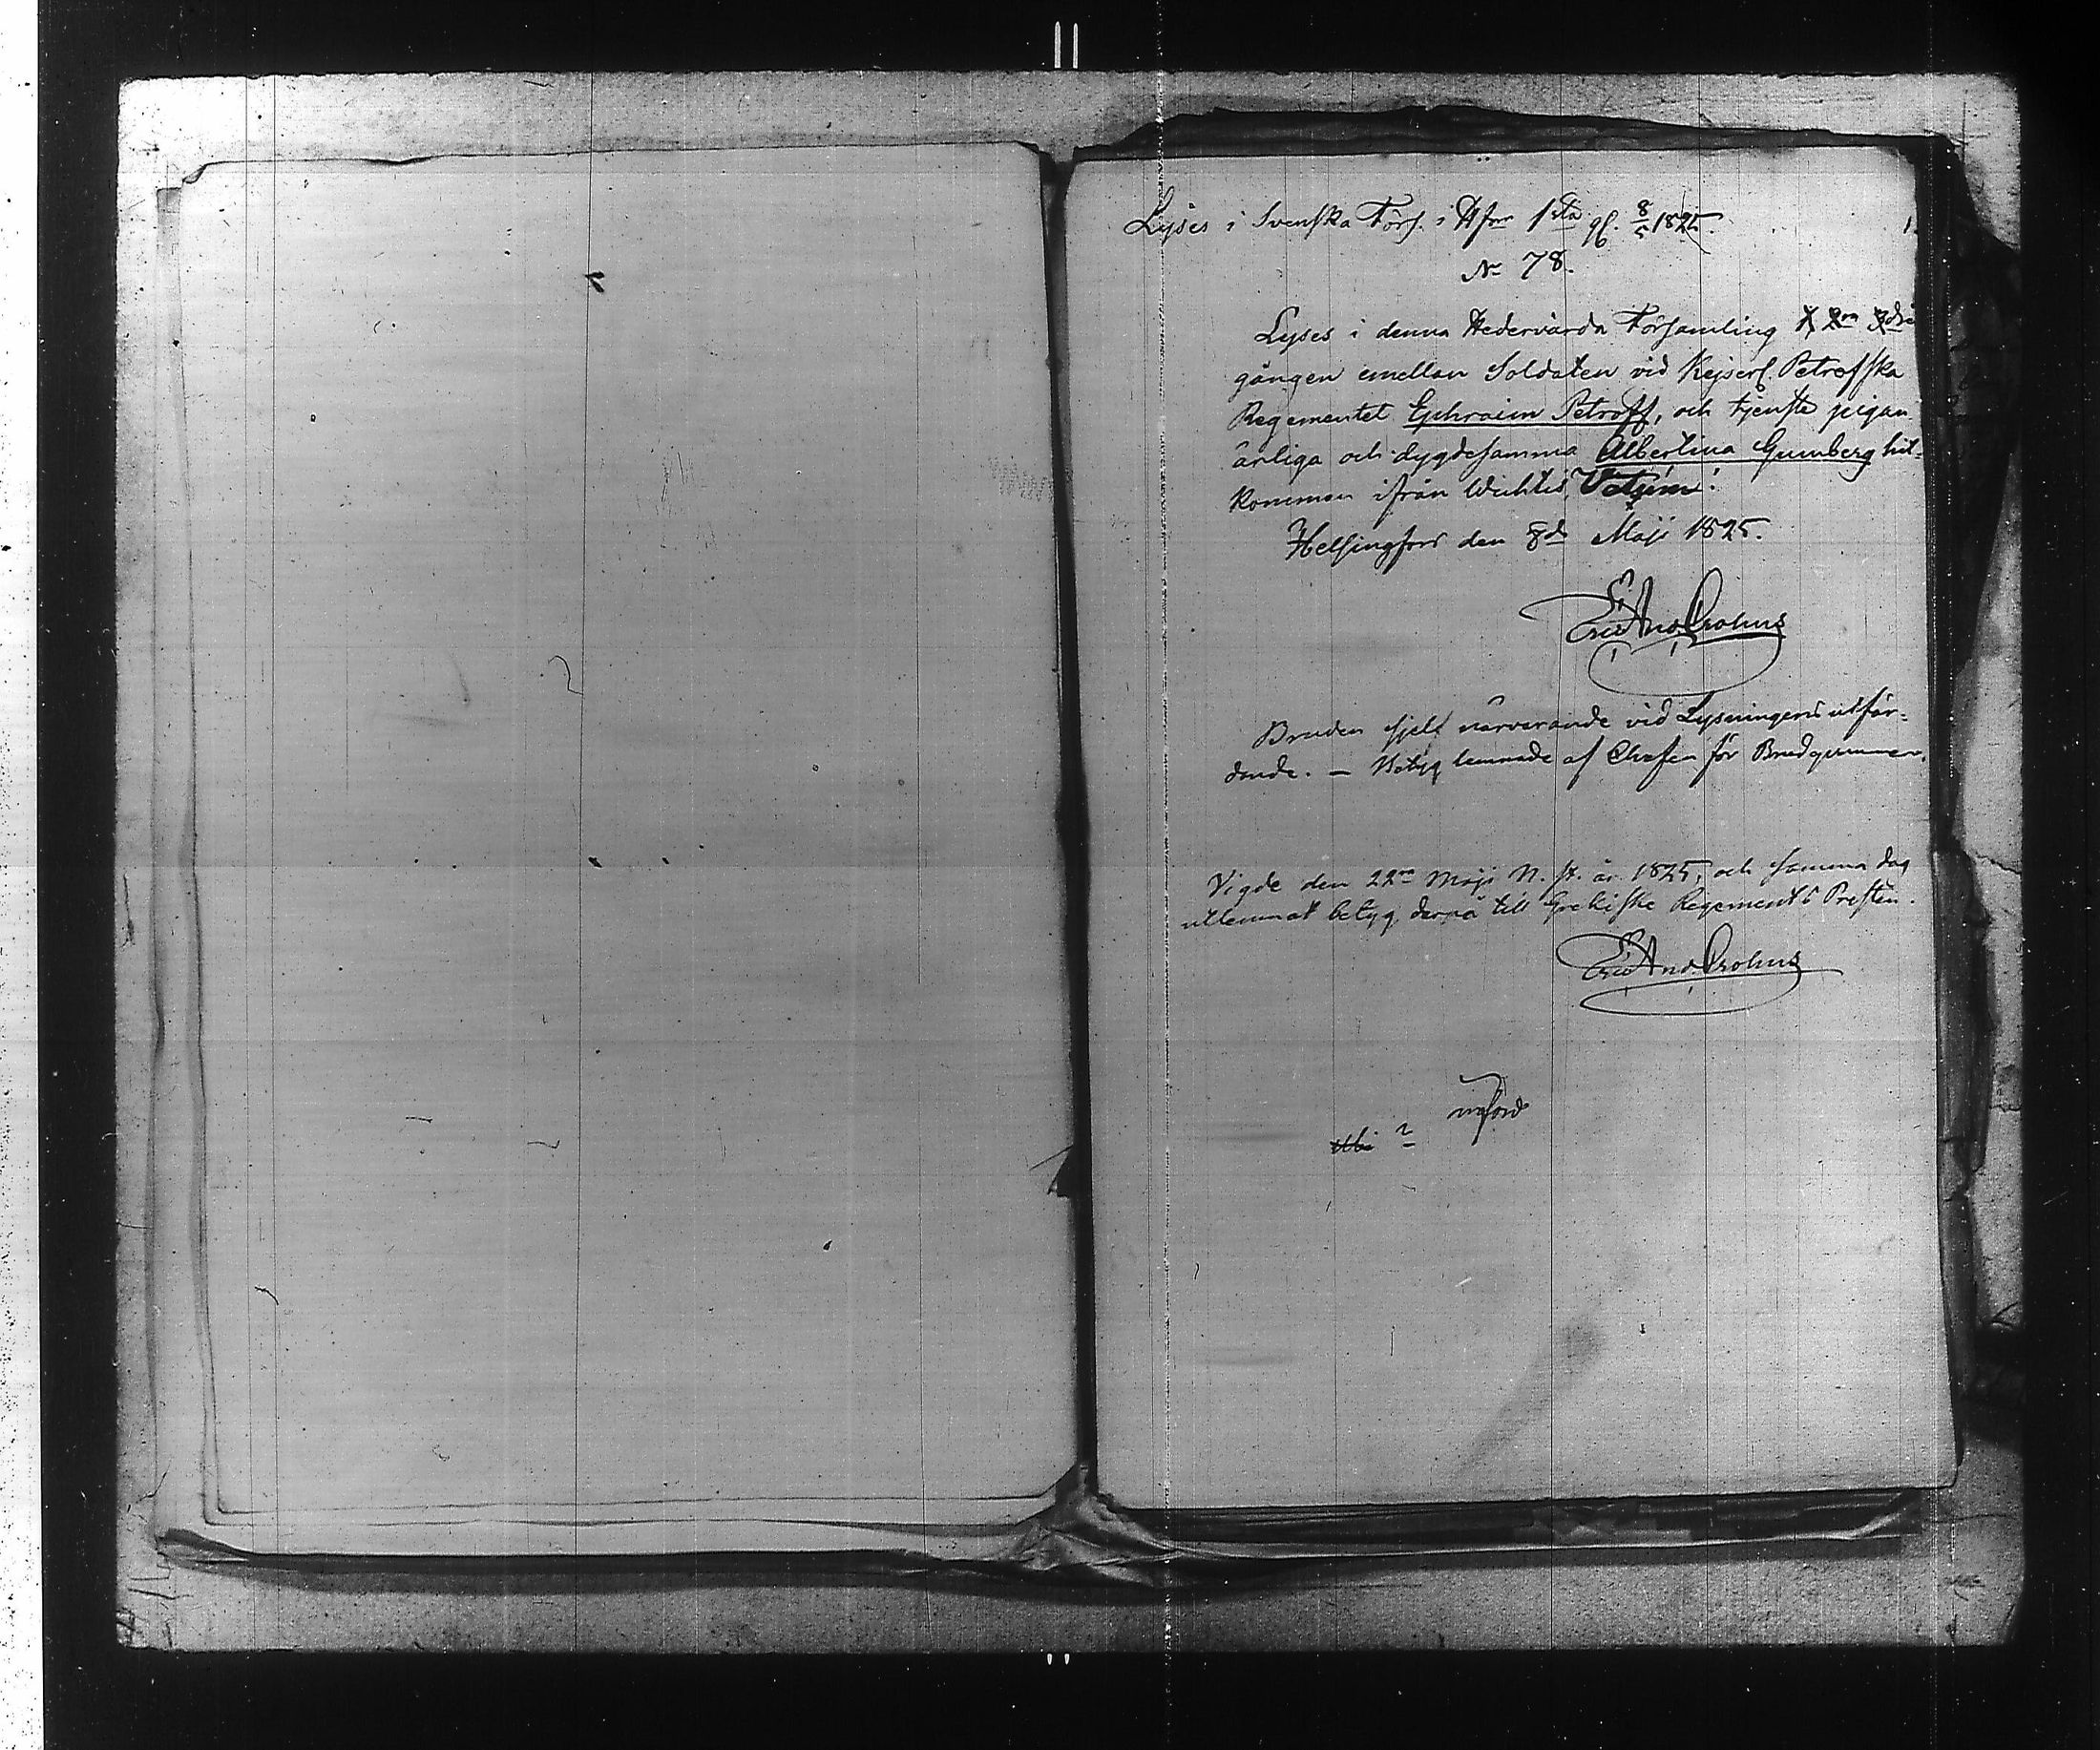 Lyses i Svenska Förs. i H:fors 1sta gg. 8/5 1825.
1.
No 78.
Lyses i denna Hedervärda Församling 1 2ra 3die
gången emellan Soldaten vid Kejserl. Petrofska
Regementet Ephraim Petroff, och tjenste pigan
ärliga och dygdesamma Albertina Gumberg hit-
kommen ifrån Wichtis
Helsingfors den 8de Maji 1825.
Eric And. Crohns
Bruden sjelf närvarande vid Lysningens utfär-
dande. — Betyg lemnade af Chefen för Brudgummen.
Vigde den 22ra Maji N. st. år 1825, och samma dag
utlemnat betyg derpå till Grekiske Regements Presten.
Eric And. Crohns
införd